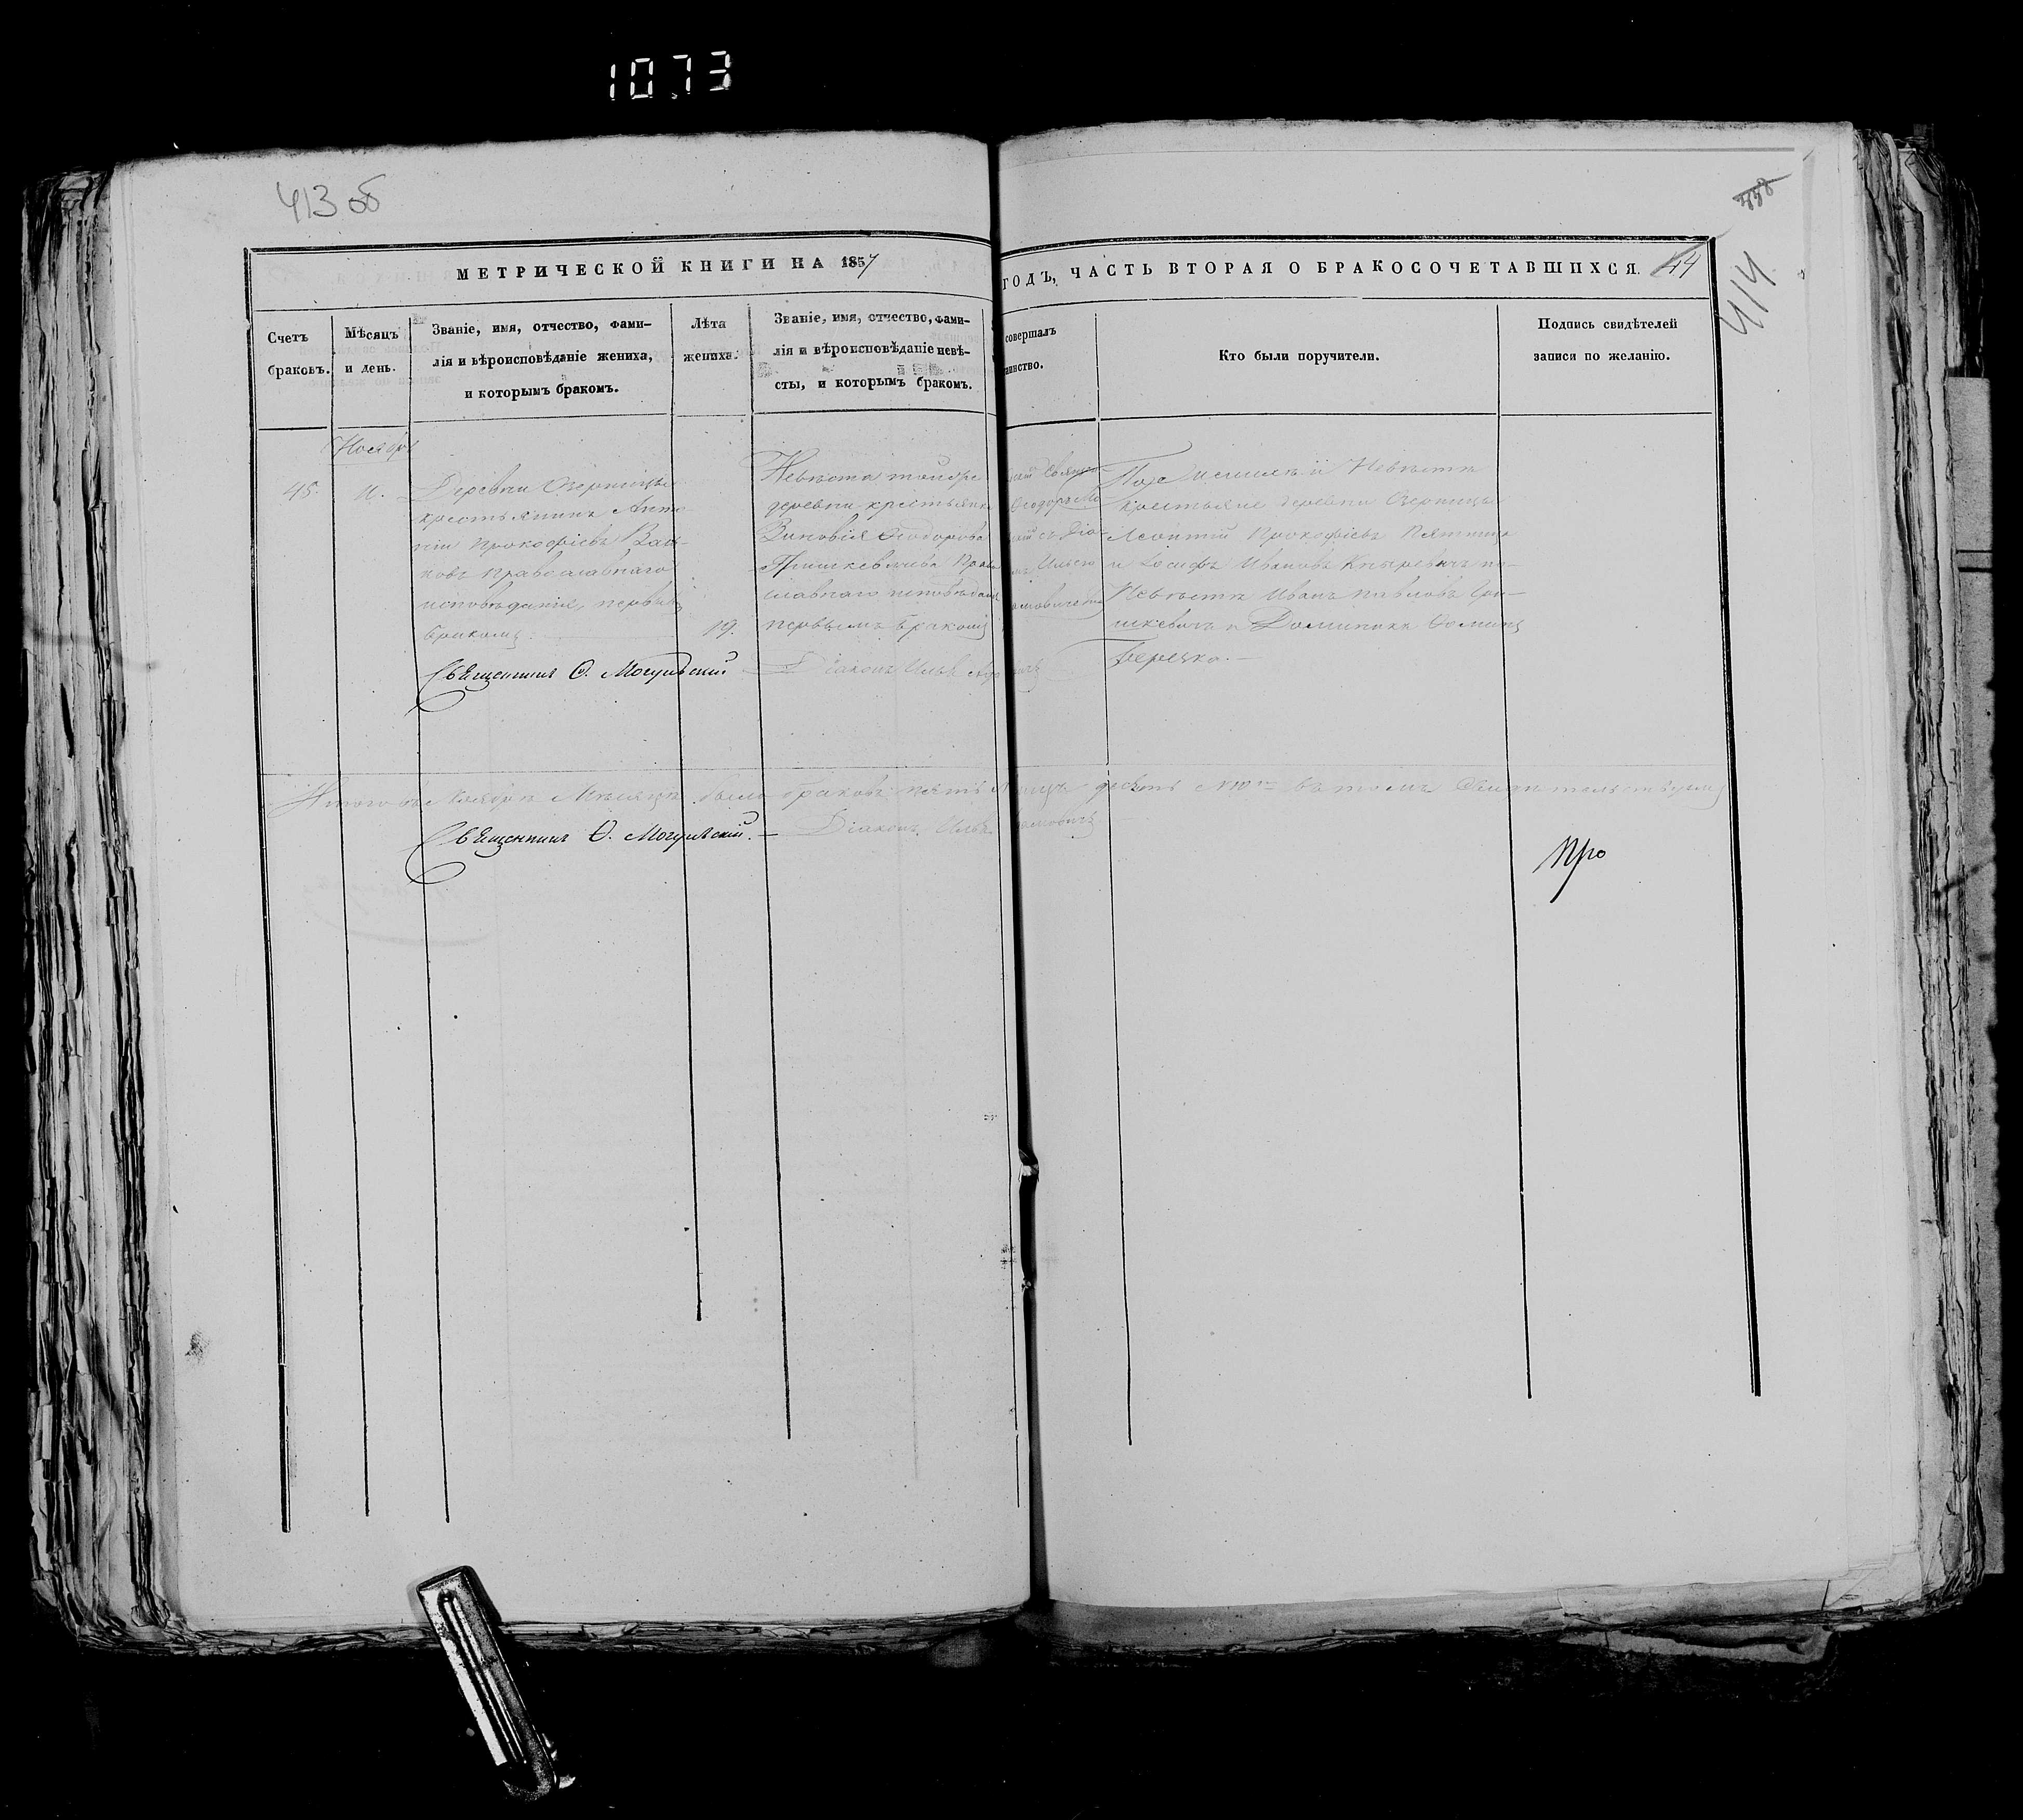 1073
413 об
438
414
МЕТРИЧЕСКОЙ КНИГИ НА 1857
ГОДЪ, ЧАСТЬ ВТОРАЯ О БРАКОСОЧЕТАВШИХСЯ. 44
Счетъ
браковъ.
Мѣсяцъ
и день.
Званіе, имя, отчество, фами-
лія и вѣроисповѣданіе жениха,
и которымъ бракомъ.
Лѣта
жениха.
Званіе, имя, отчество, фами-
лія и вѣроисповѣданіе невѣ-
сты, и которымъ бракомъ.
совершалъ
инство.
Кто были поручители.
Подпись свидѣтелей
записи по желанію.
Ноябрь
45.
11.
Деревни Озерницы
крестьянинъ Анто
ній Прокофіевъ
православнаго
исповѣданія, первымъ
бракомъ.
19.
Невѣста той же
деревни крестьянка
Зиновія Ѳеодорова
Гришкевичева Право
славнаго исповѣданія
первымъ бракомъ
Ѳеодоръ Мо
По женихѣ и Невѣстѣ
крестьяне деревни Озерницы
Леонтій Прокофіевъ Пятница
и Іосифъ Ивановъ Кныревичъ по
Невѣстѣ Иванъ Павловъ Гри-
шкевичъ и Доминикъ Ѳоминъ
Берецко.
Священникъ Ѳ. Могульскій
Діаконъ Илья
Итого въ Ноябрѣ Мѣсяцѣ было браковъ пять
десять въ томъ свидѣтельствуемъ
Священникъ Ѳ. Могульскій.
Діаконъ Илья
Про